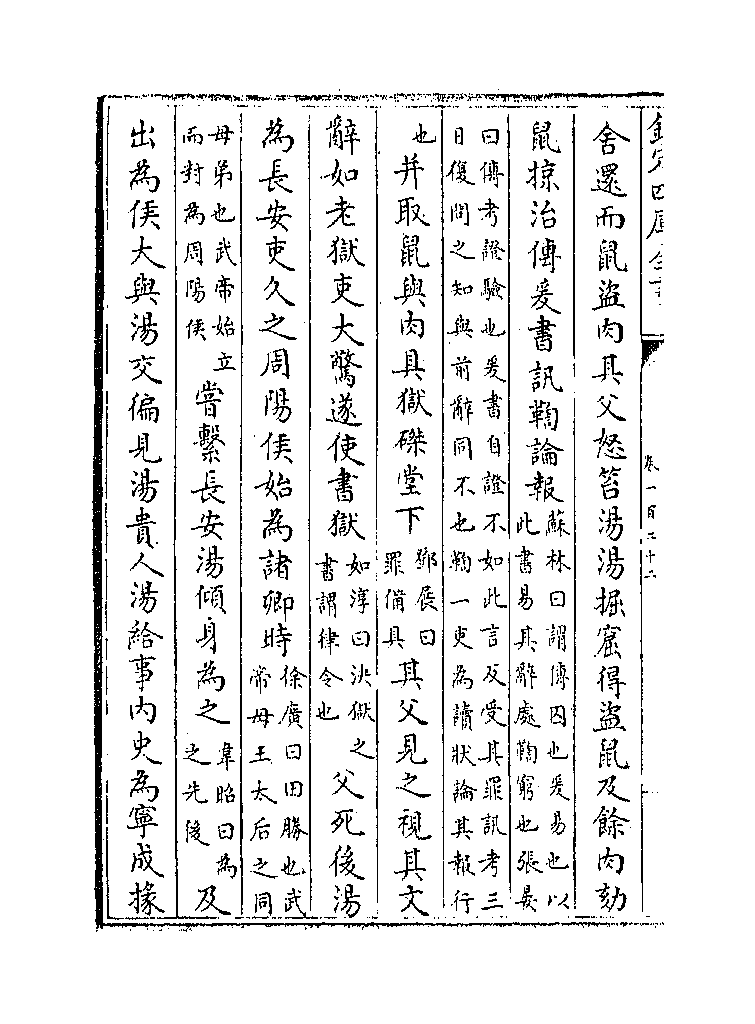 欽定四庫全書
卷一百二十二
舍還而鼠盜肉其父怒笞湯湯掘窟得盜鼠及餘肉劾
鼠掠治傳爰書訊鞫論報蘇林曰謂傳囚也爰易也以此書易其辭處鞫窮也張晏
曰傳考證驗也爰書自證不如此言反受其罪訊考三日復問之知與前辭同不也鞫一吏為讀狀論其報行
也并取鼠與肉具獄磔堂下鄧展曰罪備具其父見之視其文
辭如老獄吏大驚遂使書獄如淳曰決獄之書謂律令也父死後湯
為長安吏久之周陽侯始為諸卿時徐廣曰田勝也武帝母王太后之同
母弟也武帝始立而封為周陽侯嘗繫長安湯傾身為之韋昭曰為之先後及
出為侯大與湯交徧見湯貴人湯給事內史為寧成掾